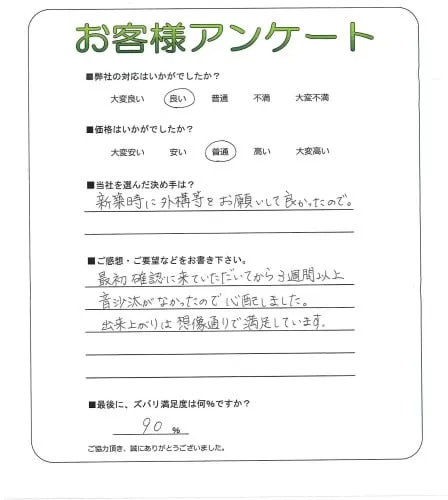 お客様アンケート
■弊社の対応はいかがでしたか？
大変良い 良い 普通 不満 大変不満
■価格はいかがでしたか？
大変安い 安い 普通 高い 大変高い
■当社を選んだ決め手は？
新築時に外構等をお願いして良かったので。
■ご感想・ご要望などをお書き下さい。
最初確認に来ていただいてから3週間以上
音沙汰がなかったので心配しました。
出来上がりは想像通りで満足しています。
■最後に、ズバリ満足度は何%ですか？
90 %
ご協力頂き、誠にありがとうございました。